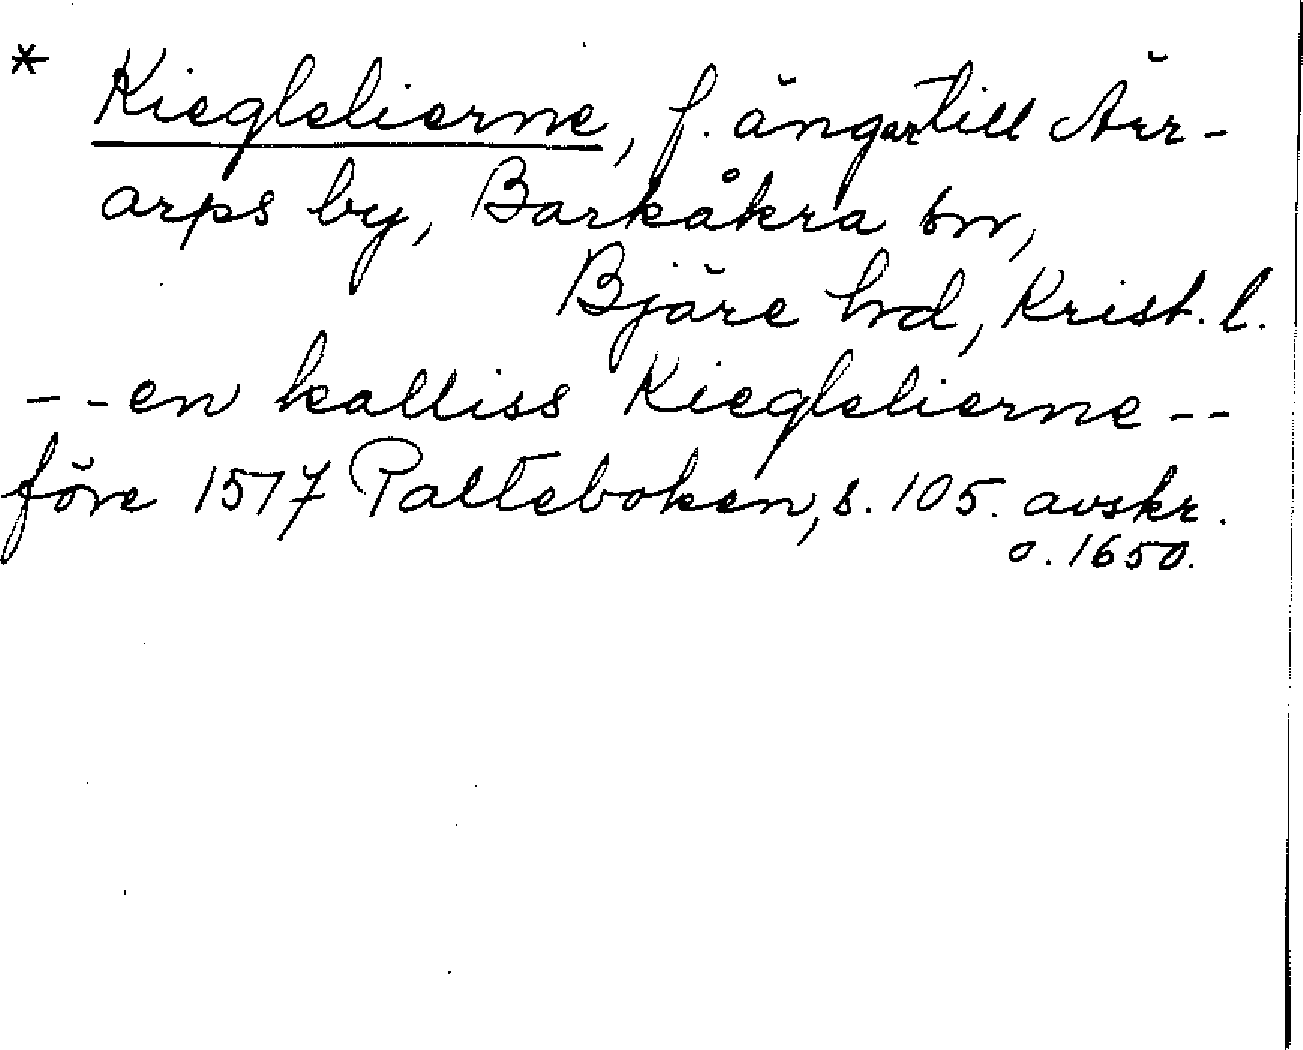 * Kieglelierne, f. ängar till Ärr-
arps by, Barkåkra sn,
Bjäre hd, Krist. l.
- - en kalliss Kieglelierne - -
före 1517 Palteboken, s. 105. avskr.
o. 1650.